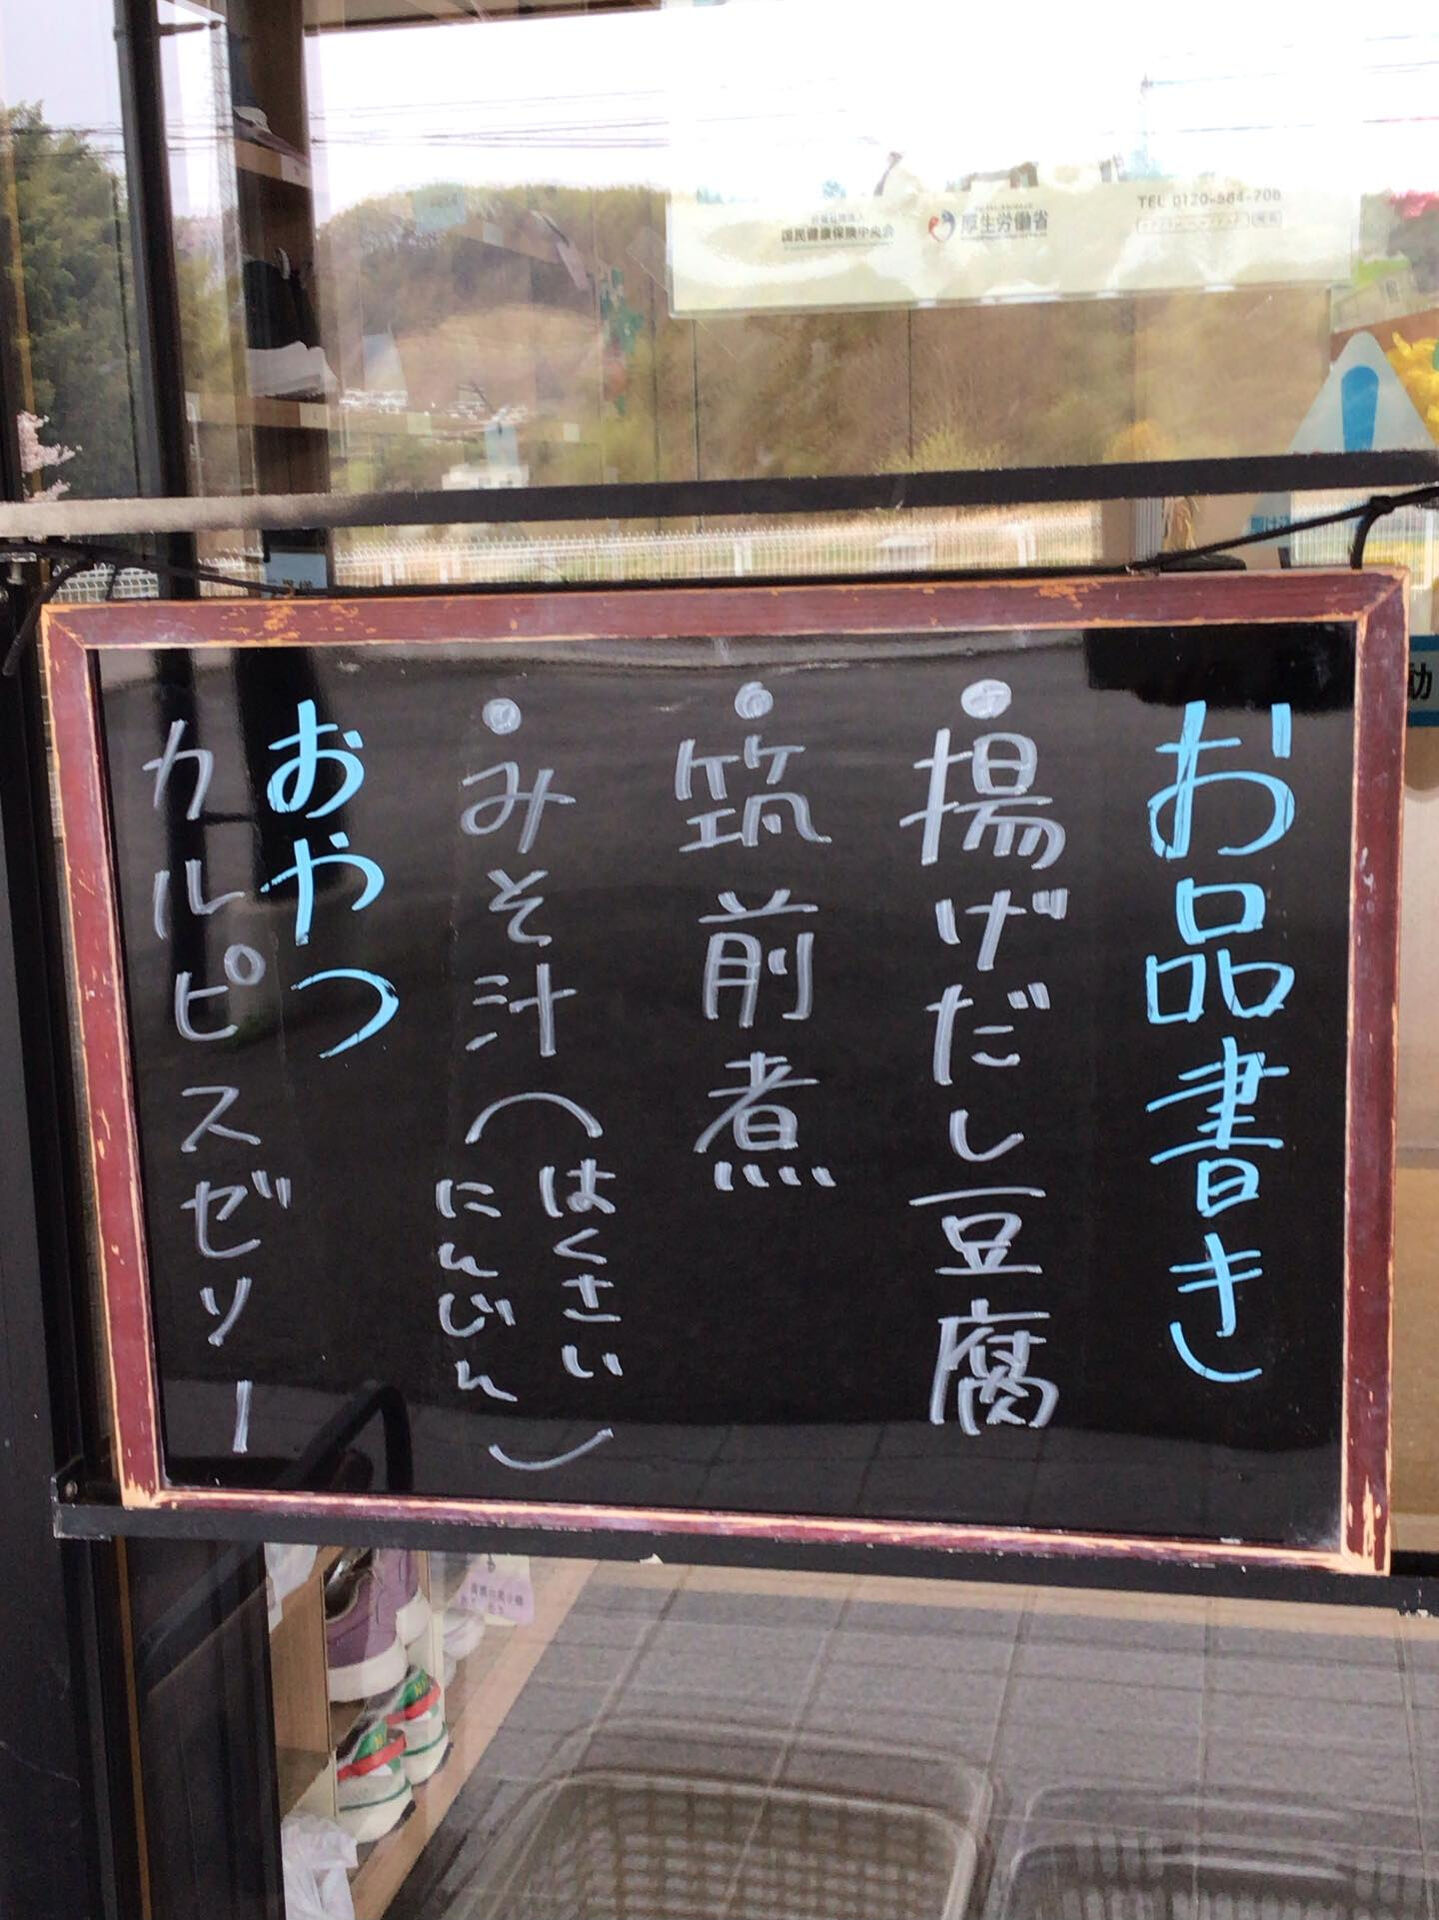 お品書き
・揚げだし豆腐
・筑前煮
・みそ汁(はくさい
にんじん)
おやつ
カルピスゼリー
国民健康保険中央会
厚生労働省